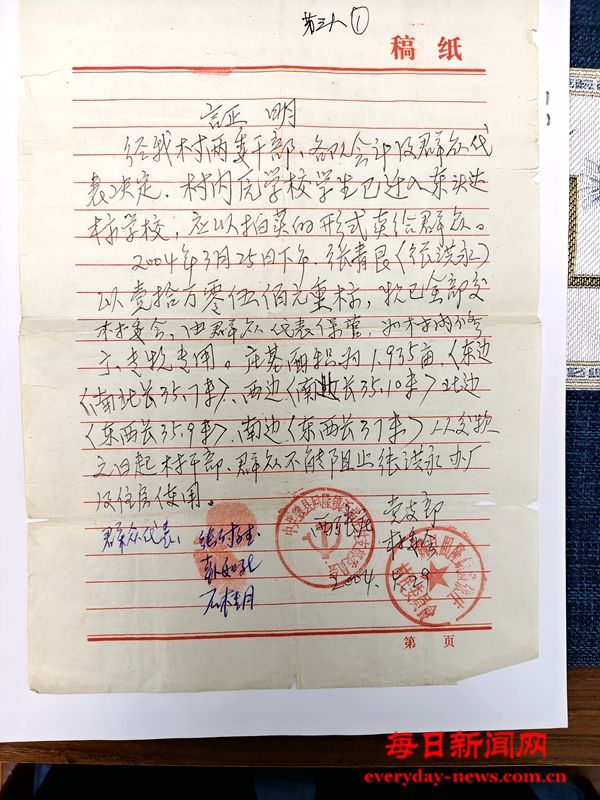 第三人①
稿 纸
証 明
经我村两委干部、各队会计及群众代
表决定.村内院学校学生已迁入东头达
标学校,应以拍卖的形式卖给群众。
2004年3月25日下午.张青良〈张洪永〉
以壹拾万零伍佰元重标,款已全部交
村委会,由群众代表保管,如村
专款专用。庄基面积约1.935亩,〈东边
〈南北长35.7米〉、西边〈南北长35.10米〉北边
〈东西长35.9米〉、南边〈东西长37米〉以交款
之日起村干部.群众不能阻止张洪永办厂
及住房使用。
群众代表:
党支部
村委会
2004.
第 页
每日新闻网
everyday-news.com.cn